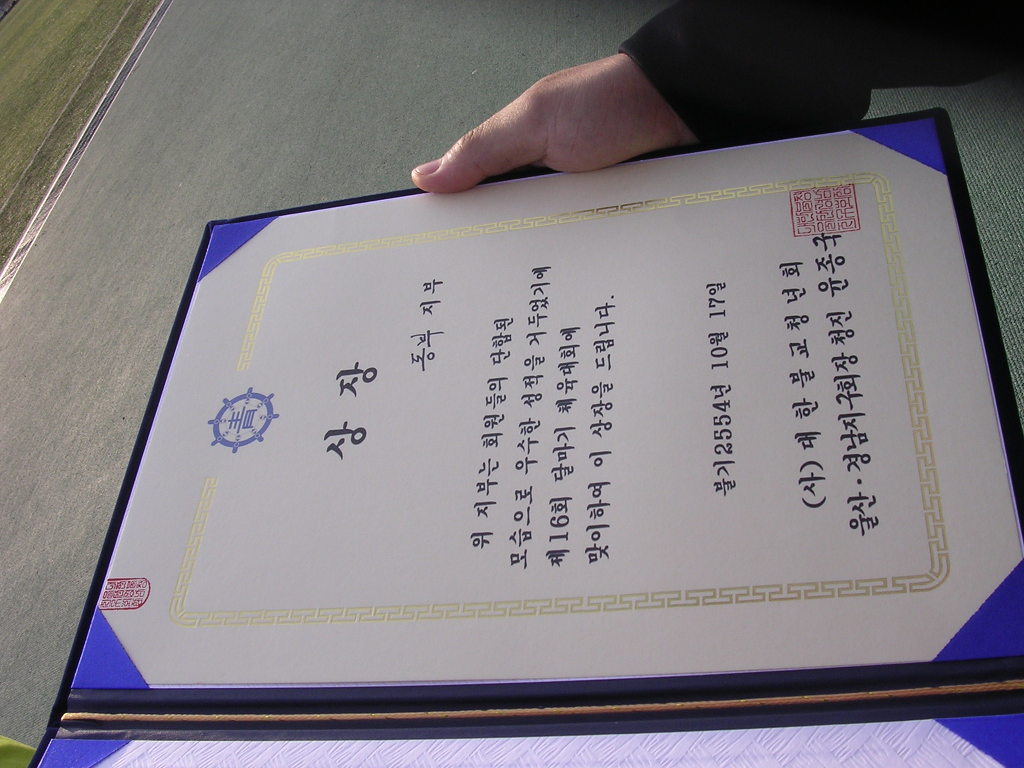 靑
상 장
동부 지부
위 지부는 회원들의 단합된
모습으로 우수한 성적을 거두었기에
제16회 달마기 체육대회에
맞이하여 이 상장을 드립니다.
불기2554년 10월 17일
(사) 대한불교청년회
울산·경남지구회장 청진 윤종국